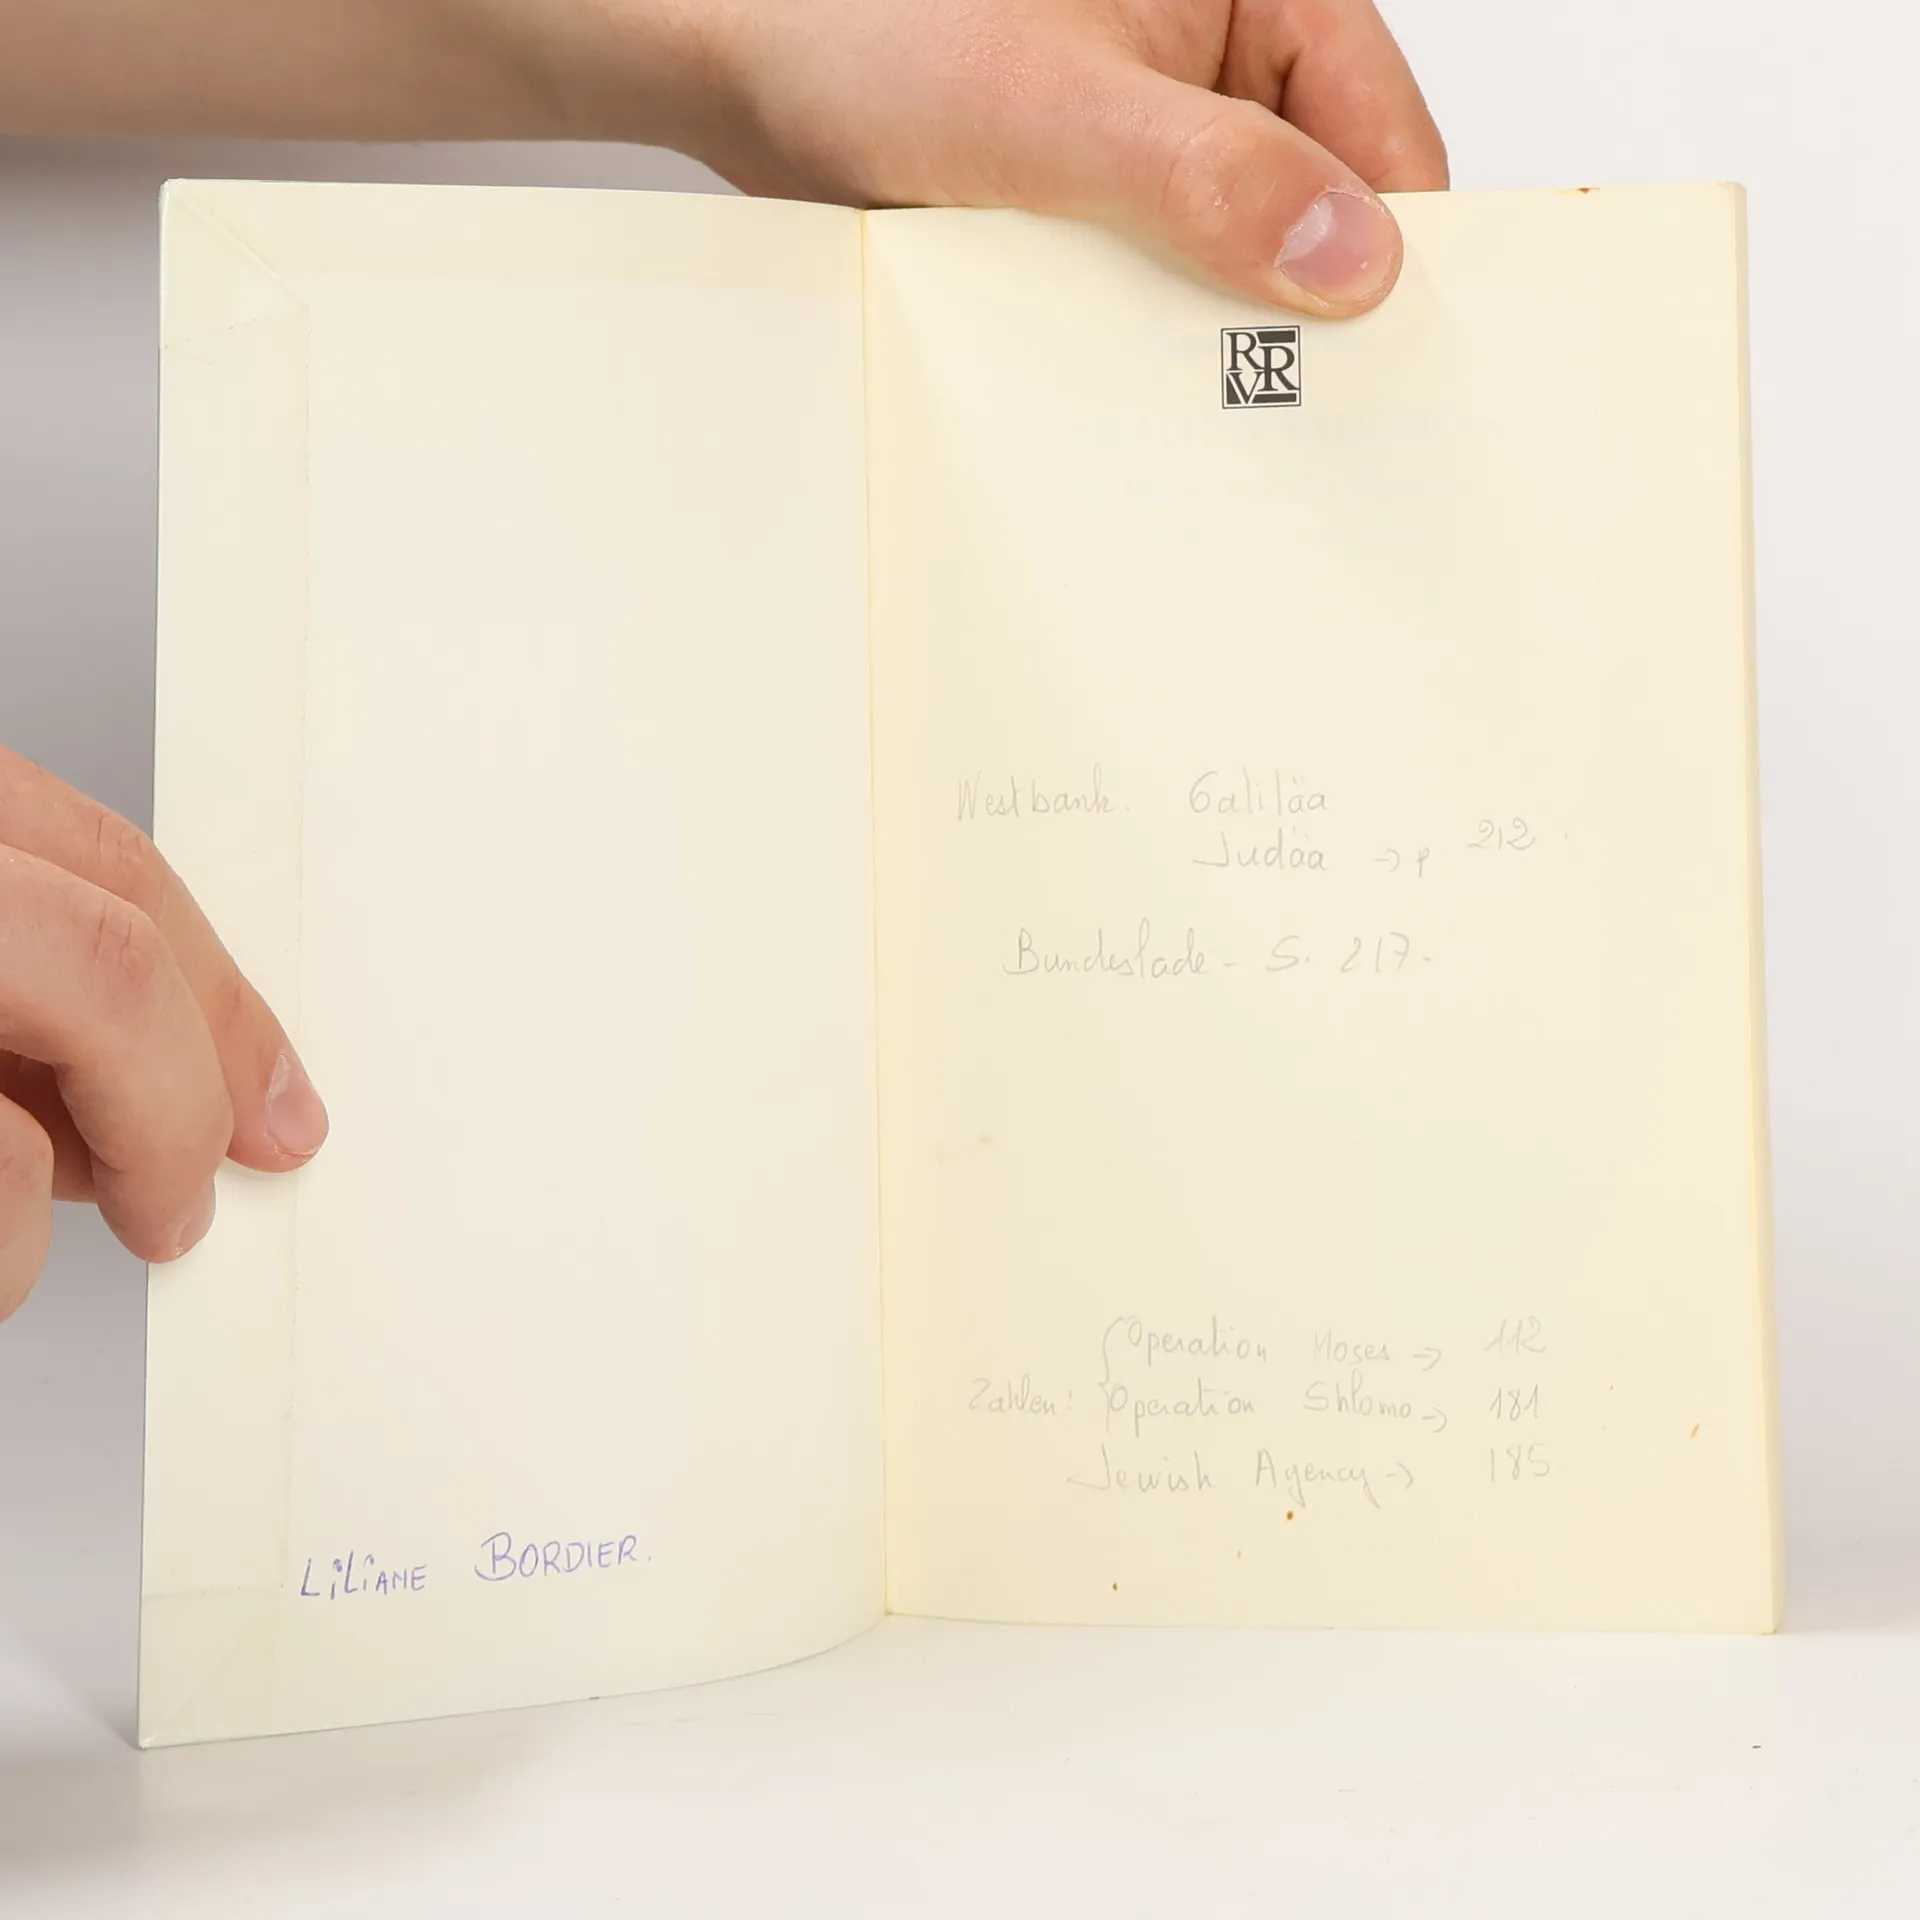 LiLiANE BORDIER.
RRV
Westbank. Galiläa
Judäa -> p 212.
Bundeslade - S. 217.
Operation Moses -> 112
Zahlen: Operation Shlomo -> 181
Jewish Agency -> 185